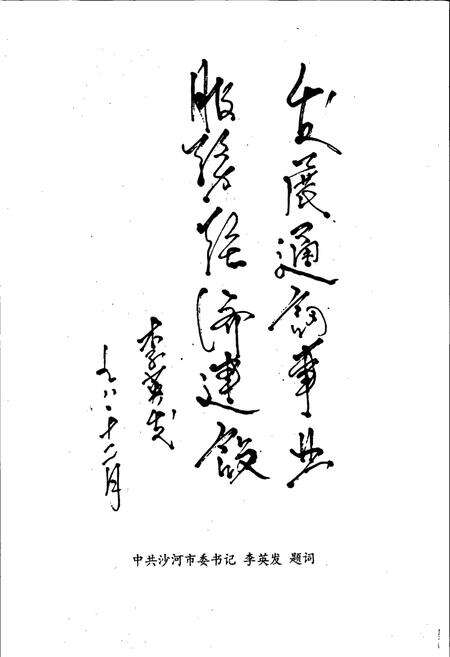 发展通讯事业
服务经济建设
李英发
九八·十二月
中共沙河市委书记 李英发 题词